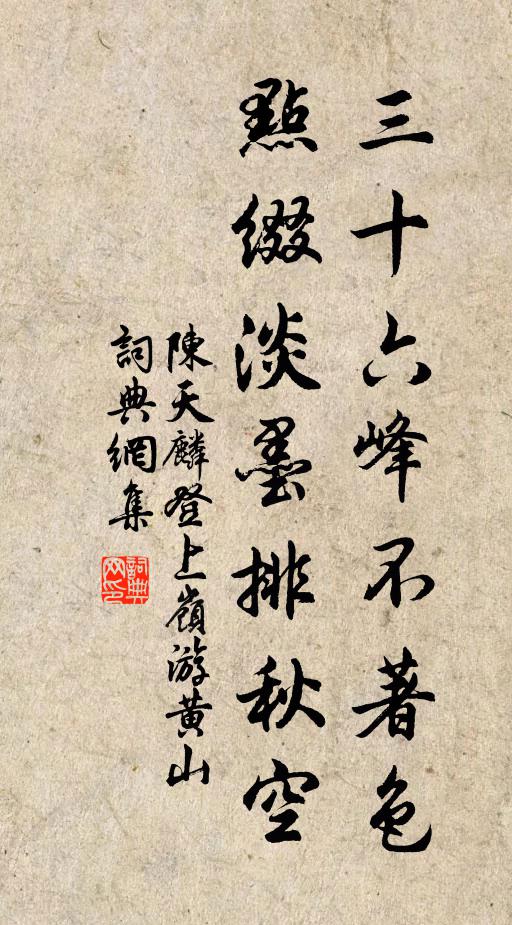 三十六峰不著色
點綴淡墨排秋空
陳天麟登上嶺游黃山
詞典網集
詞典網印